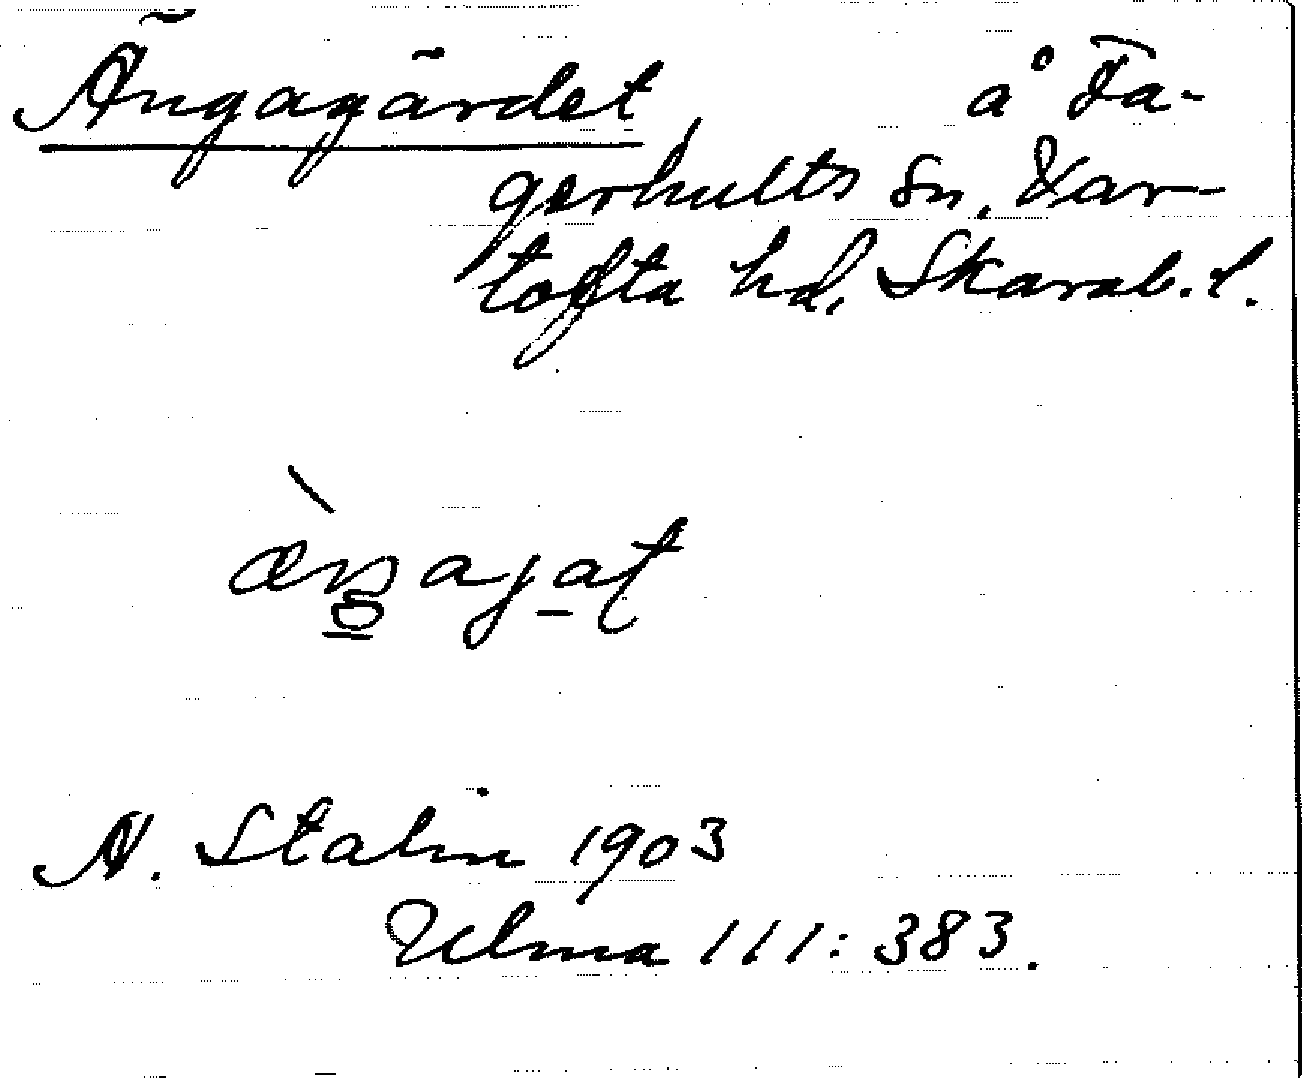 Ängagärdet, å Fa-
gerhults sn. Var-
tofta hd, Skarab. l.
A. Stalin 1903
Ulma 111:383.